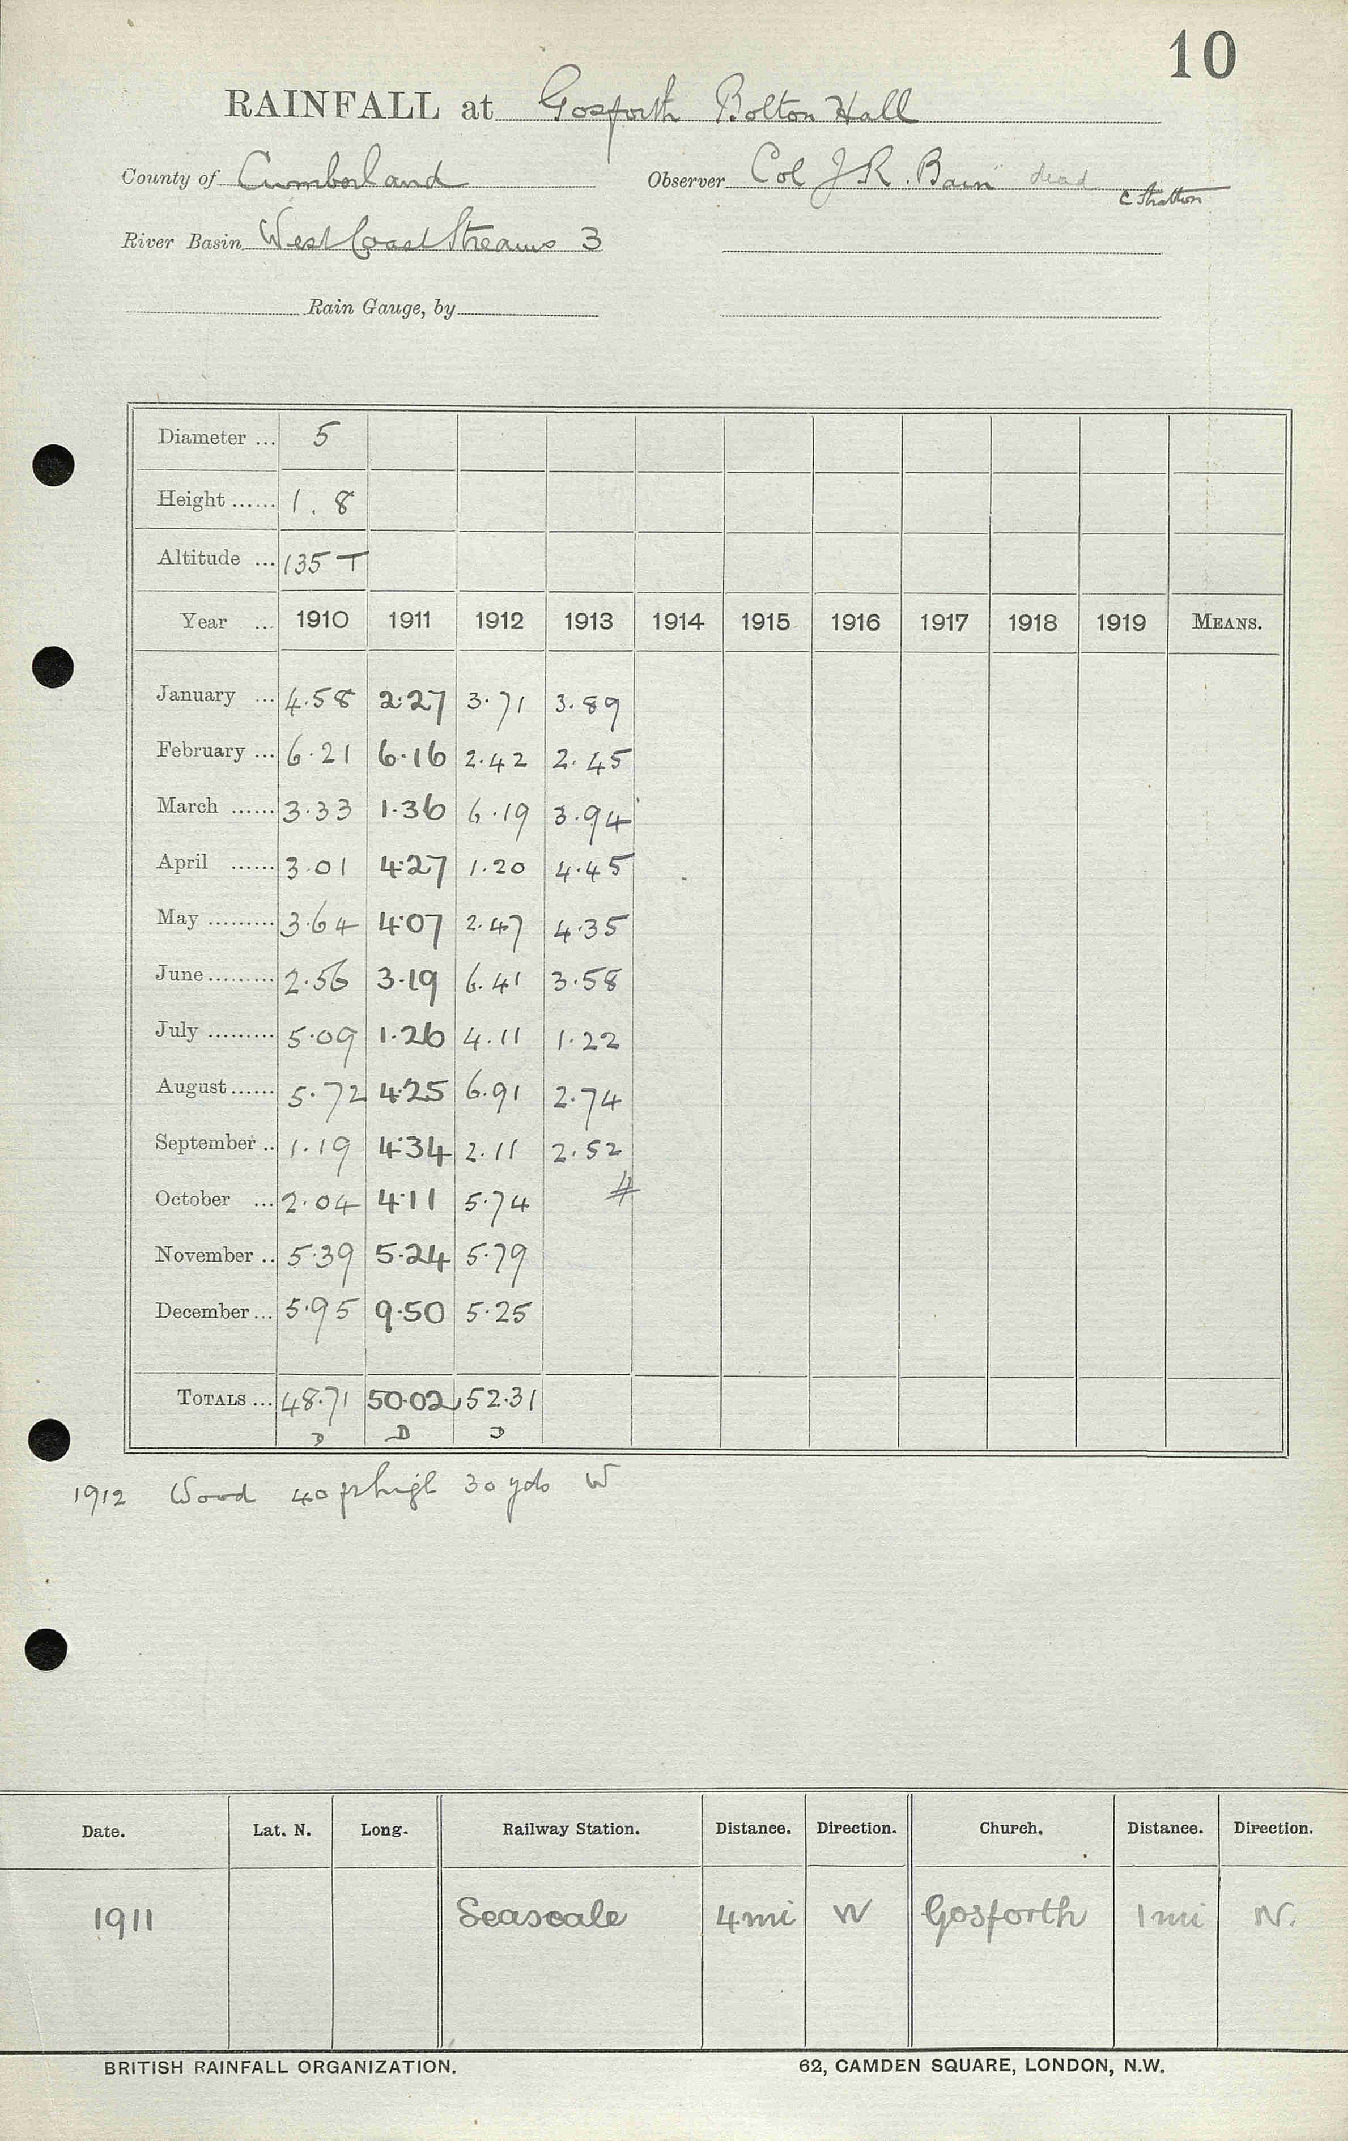 10
RAINFALL at Gosforth Bolton Hall
County of Cumberland Observer Col J R. Bain dead C Stratton
River Basin West Coast Streams 3
Rain Gauge, by
Diameter ... 5
Height ...... 1. 8
Altitude ... 135 T
Year ... 1910 1911 1912 1913 1914 1915 1916 1917 1918 1919 MEANS.
January ... 4.58 2.27 3.71 3.89
February ... 6.21 6.16 2.42 2.45
March ...... 3.33 1.36 6.19 3.94
April ...... 3.01 4.27 1.20 4.45
May ......... 3.64 4.07 2.47 4.35
June ......... 2.56 3.19 6.41 3.58
July ......... 5.09 1.26 4.11 1.22
August ...... 5.72 4.25 6.91 2.74
September .. 1.19 4.34 2.11 2.52
October ... 2.04 4.11 5.74
November .. 5.39 5.24 5.79
December ... 5.95 9.50 5.25
TOTALS ... 48.71 50.02 52.31
D D D
1912 Wood 40 high 30 yds W
Date. Lat. N. Long. Railway Station. Distance. Direction. Church. Distance. Direction.
1911 Seascale 4mi W Gosforth 1mi N.
BRITISH RAINFALL ORGANIZATION. 62, CAMDEN SQUARE, LONDON, N.W.